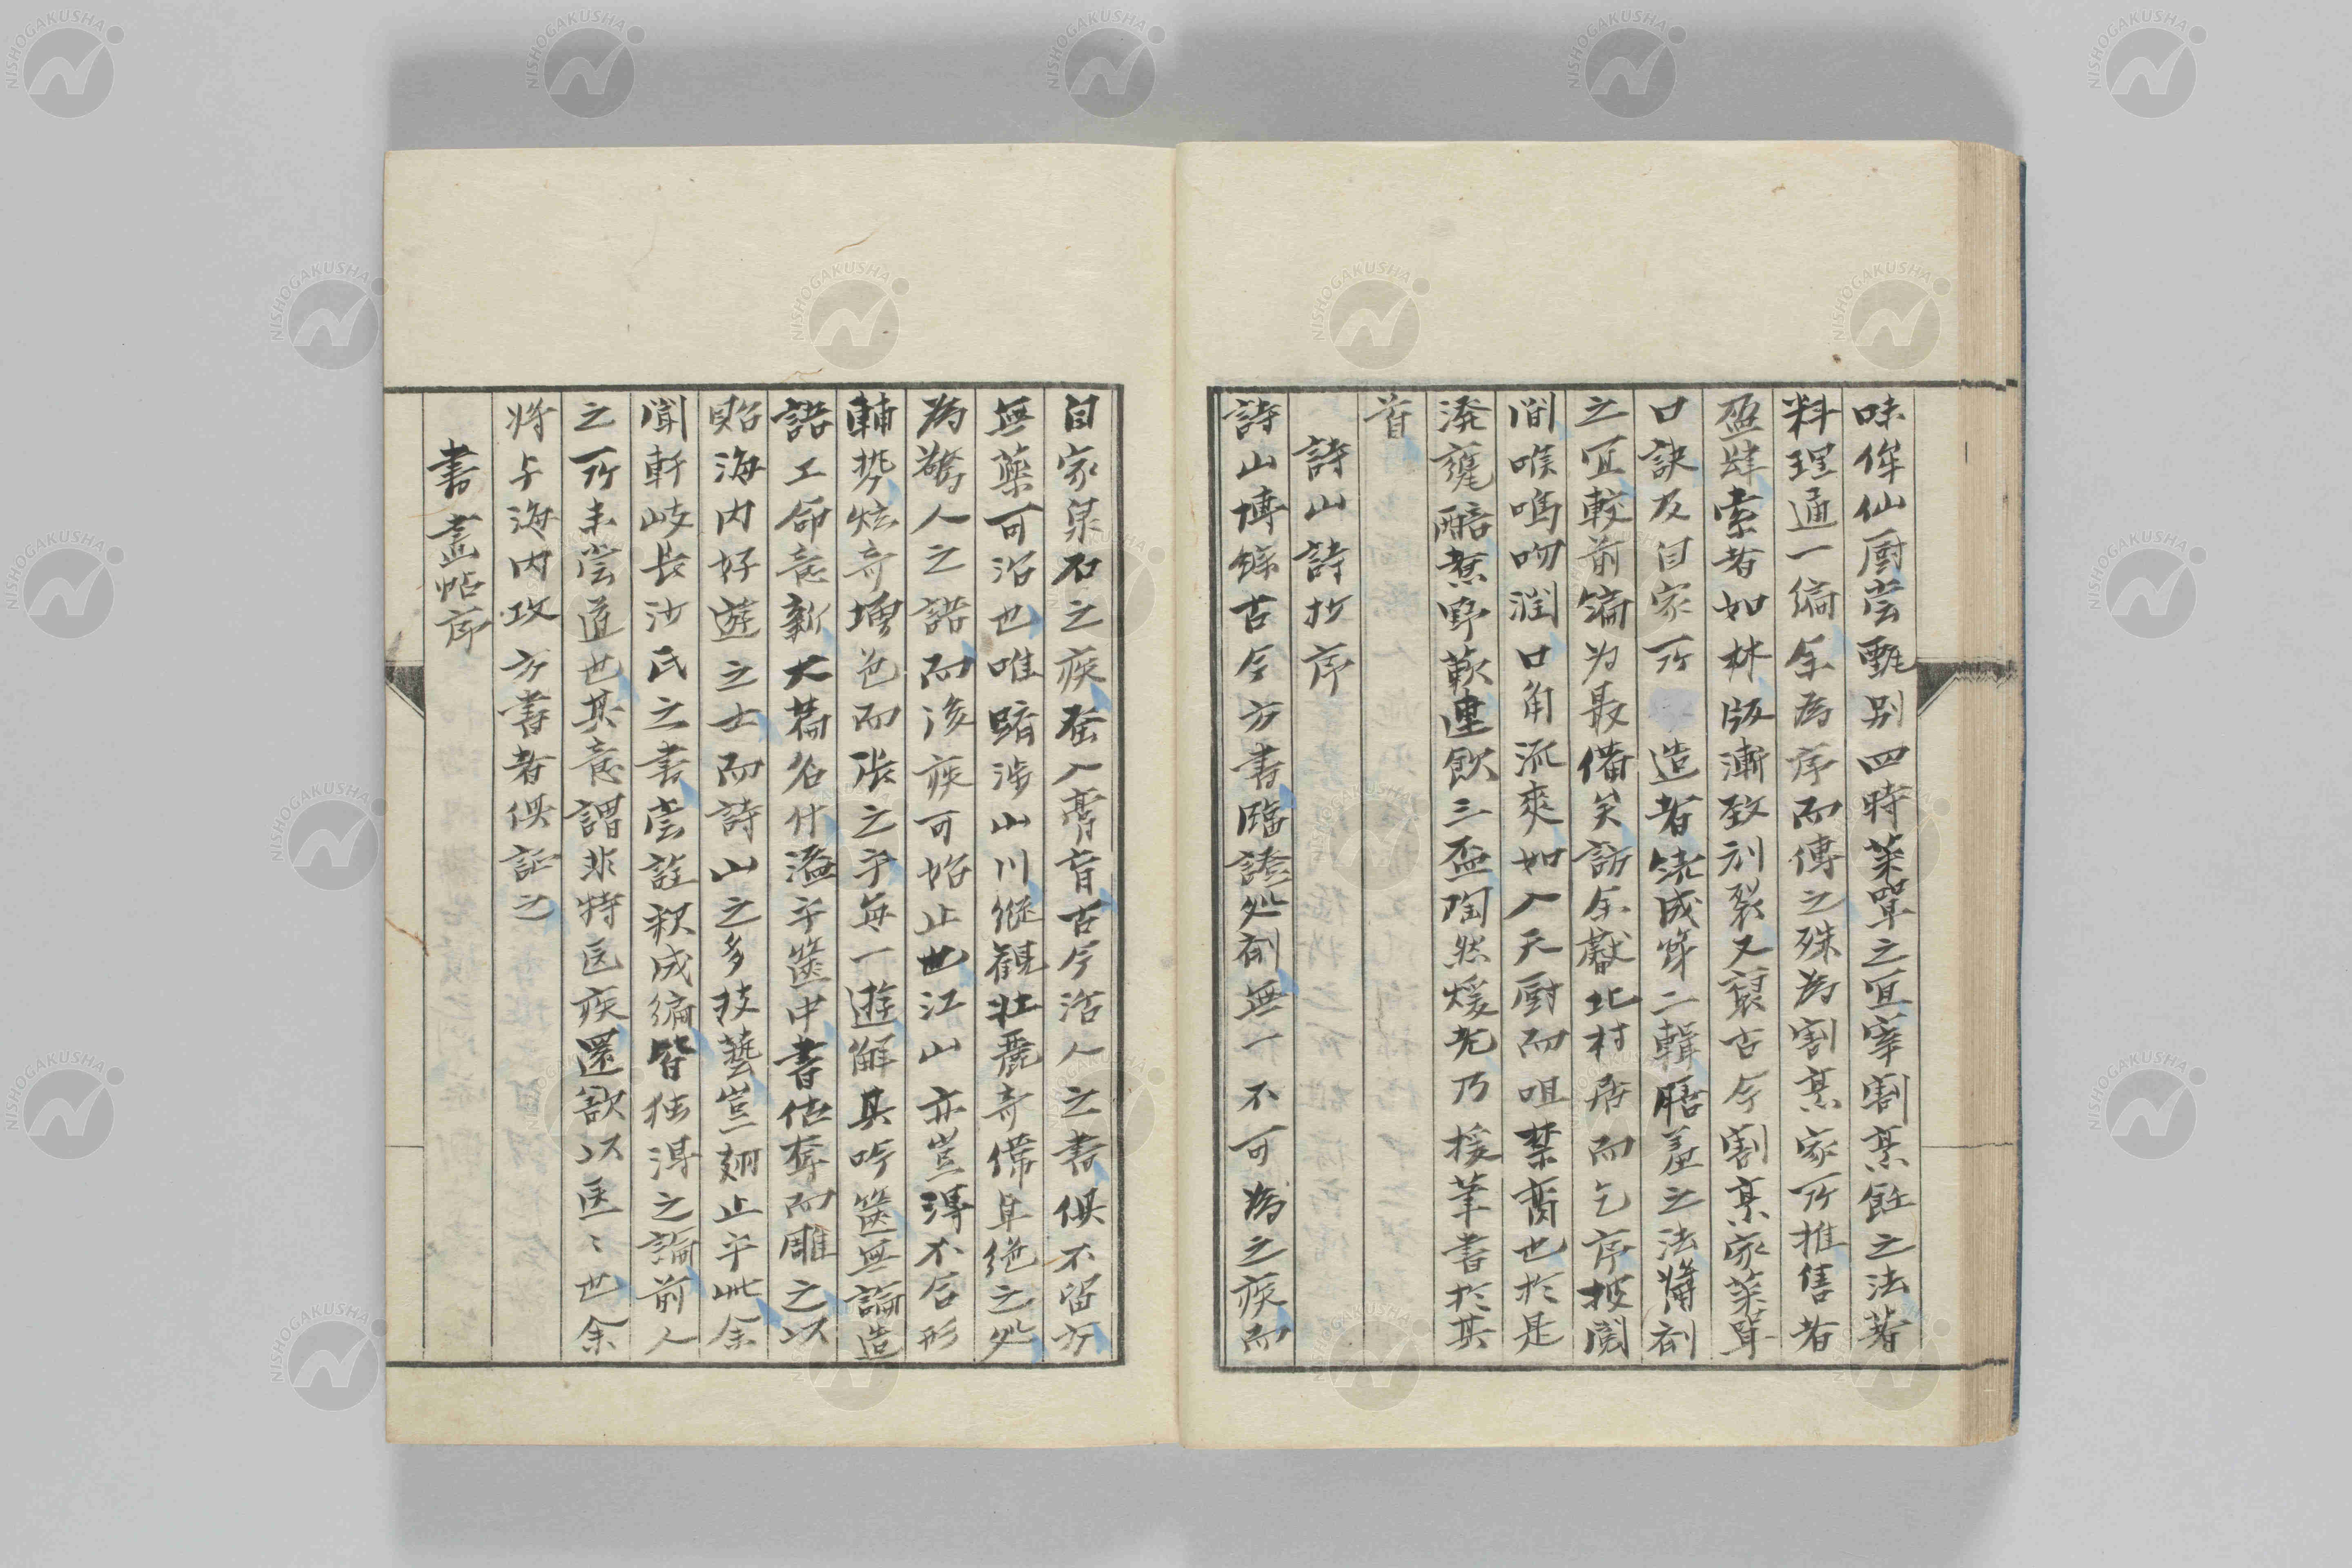 味侔仙厨嘗甄别四時菜單之宜宰割烹飪之法著
料理通一編余為序而傳之殊為割烹家所推售者
盈肆索者如林版漸致刓裂又裒古今割烹家菜單
口訣及自家所造者緒成第二輯膳羞之法燔劑
之宜較前編为最備矣訪余巚北村居而乞序披閲
間喉鳴吻潤口角流爽如入天厨而咀禁臠也於是
潑甕醅煮野蔌連飲三盃陶然煖老乃援筆書於其
首
詩山詩抄序
詩山博綜古今方書臨證処劑無一不可為之疾而
自家泉石之疾奎入膏肓古今活人之書俱不留方
無藥可治也唯蹐渉山川縱觀壯麗奇偉卓絶之処
為驚人之語而後疾可始止也江山亦豈得不呈形
輔勢炫奇增色而張之乎每一遊解其吟篋無論造
語工命意新大篇名什溢乎篋中書估奪而雕之以
貽海内好遊之士而詩山之多技藝豈翅止乎此余
聞軒岐長沙氏之書嘗註釈成編皆独得之論前人
之所未嘗道也其意謂非特医疾還欲以医〻世余
将与海内攻方書者俱証之
書畫帖序
NISHOGAKUSHA